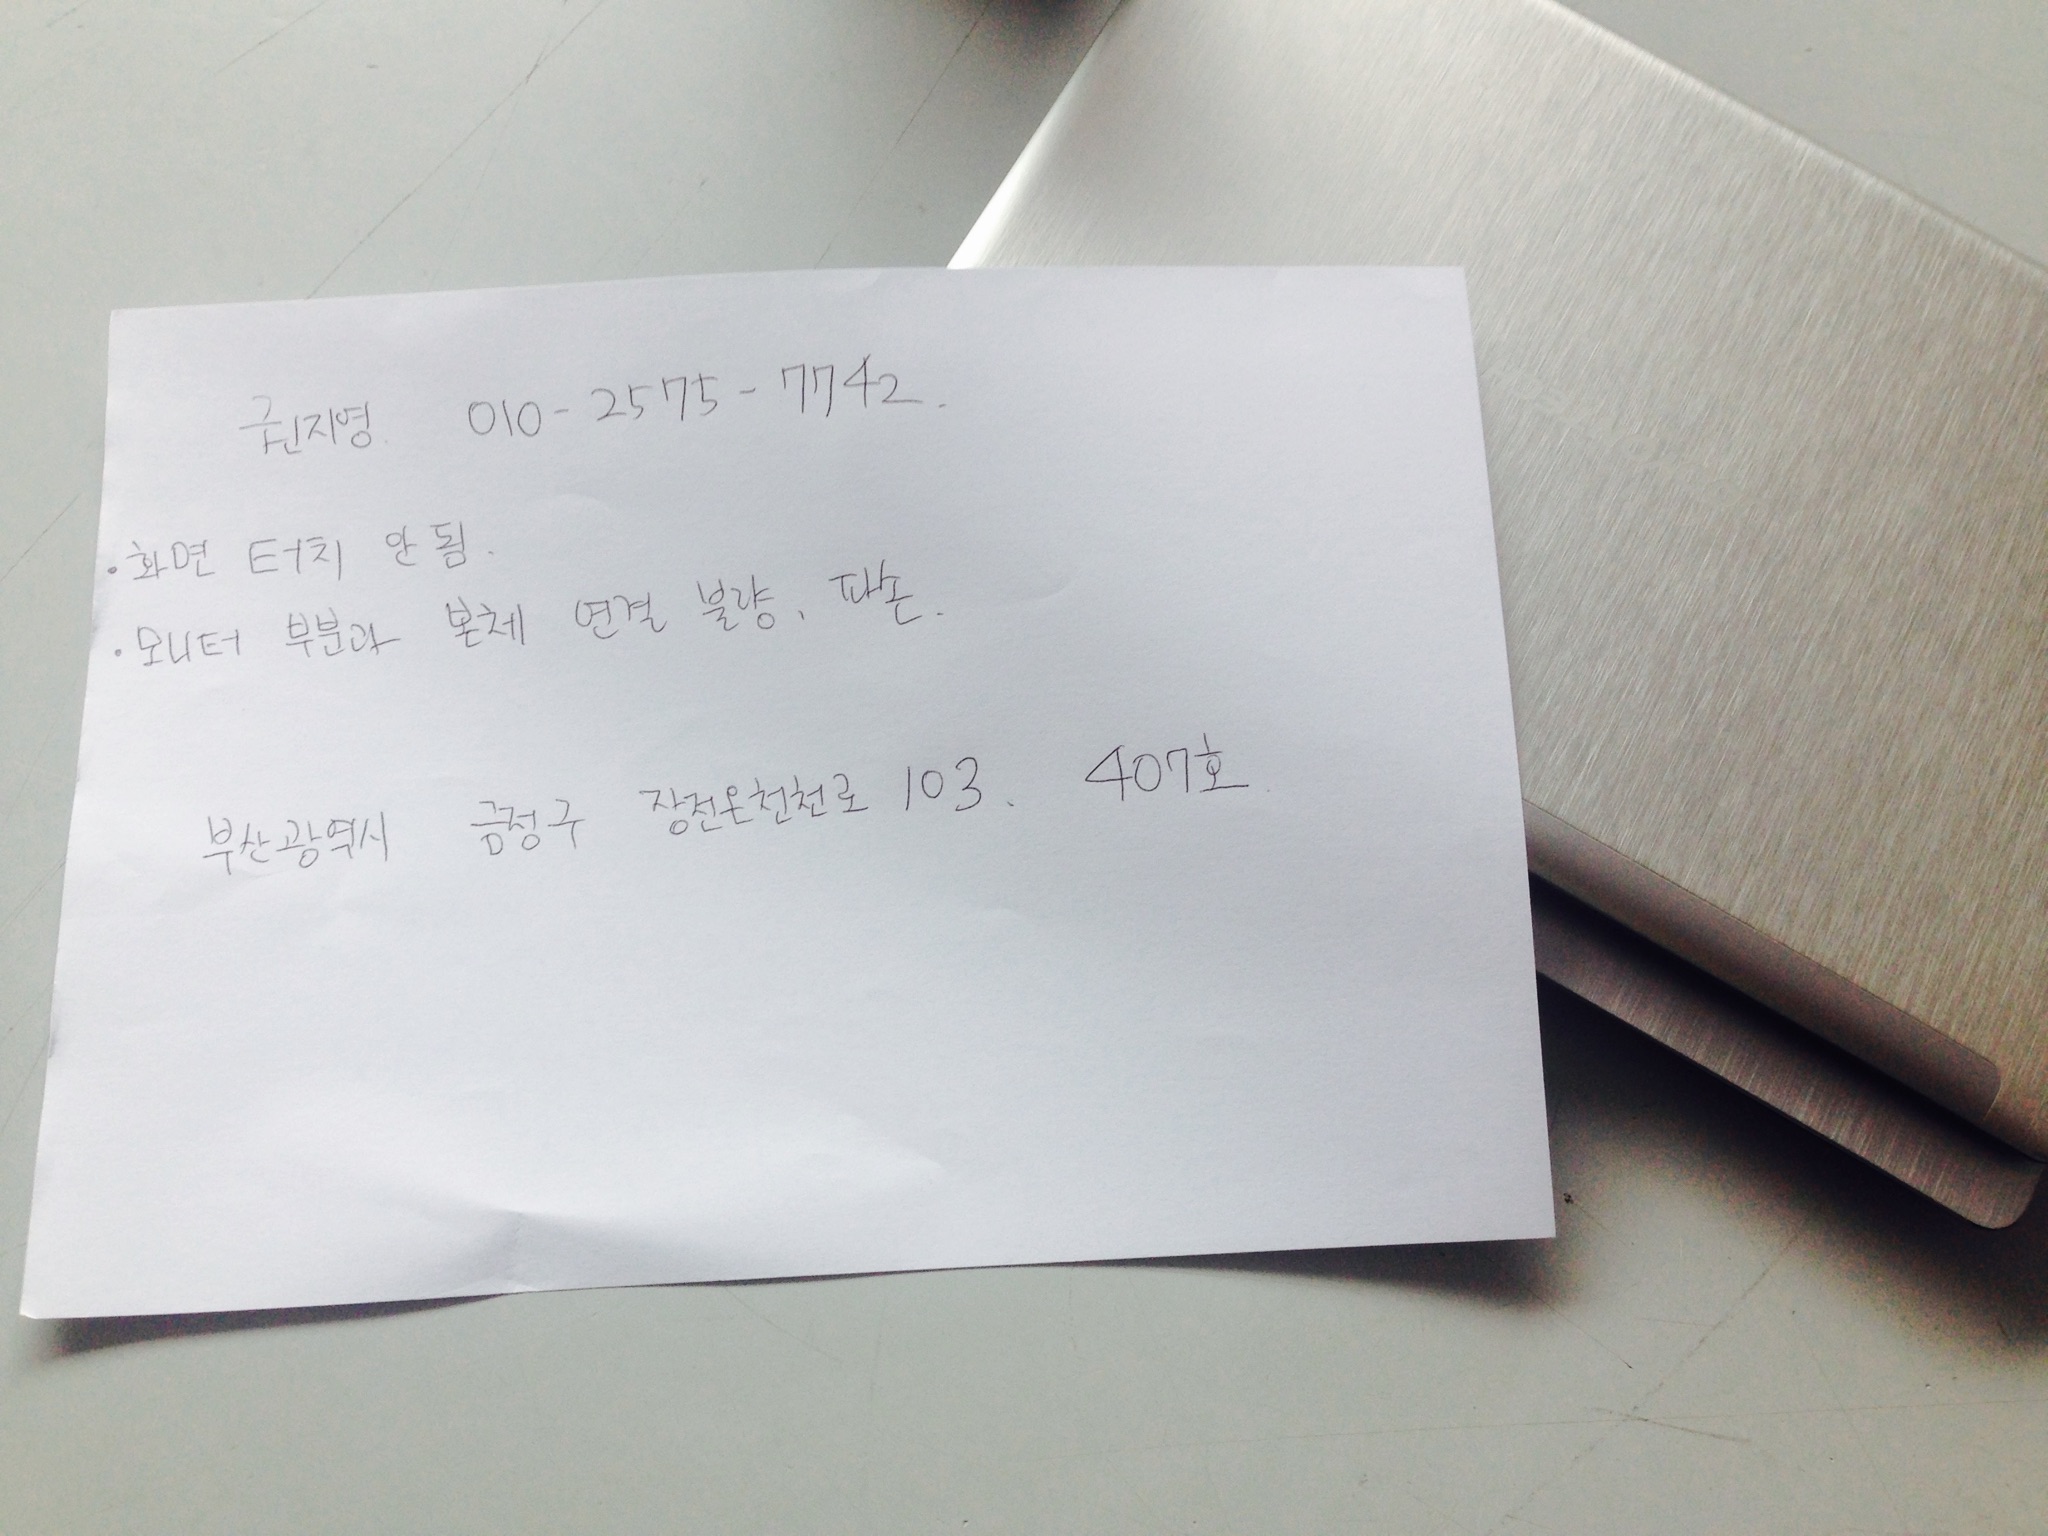 권지영. 010-2575-7742.
· 화면 터치 안 됨.
· 모니터 부분과 본체 연결 불량, 파손.
부산광역시 금정구 장전온천천로 103. 407호.